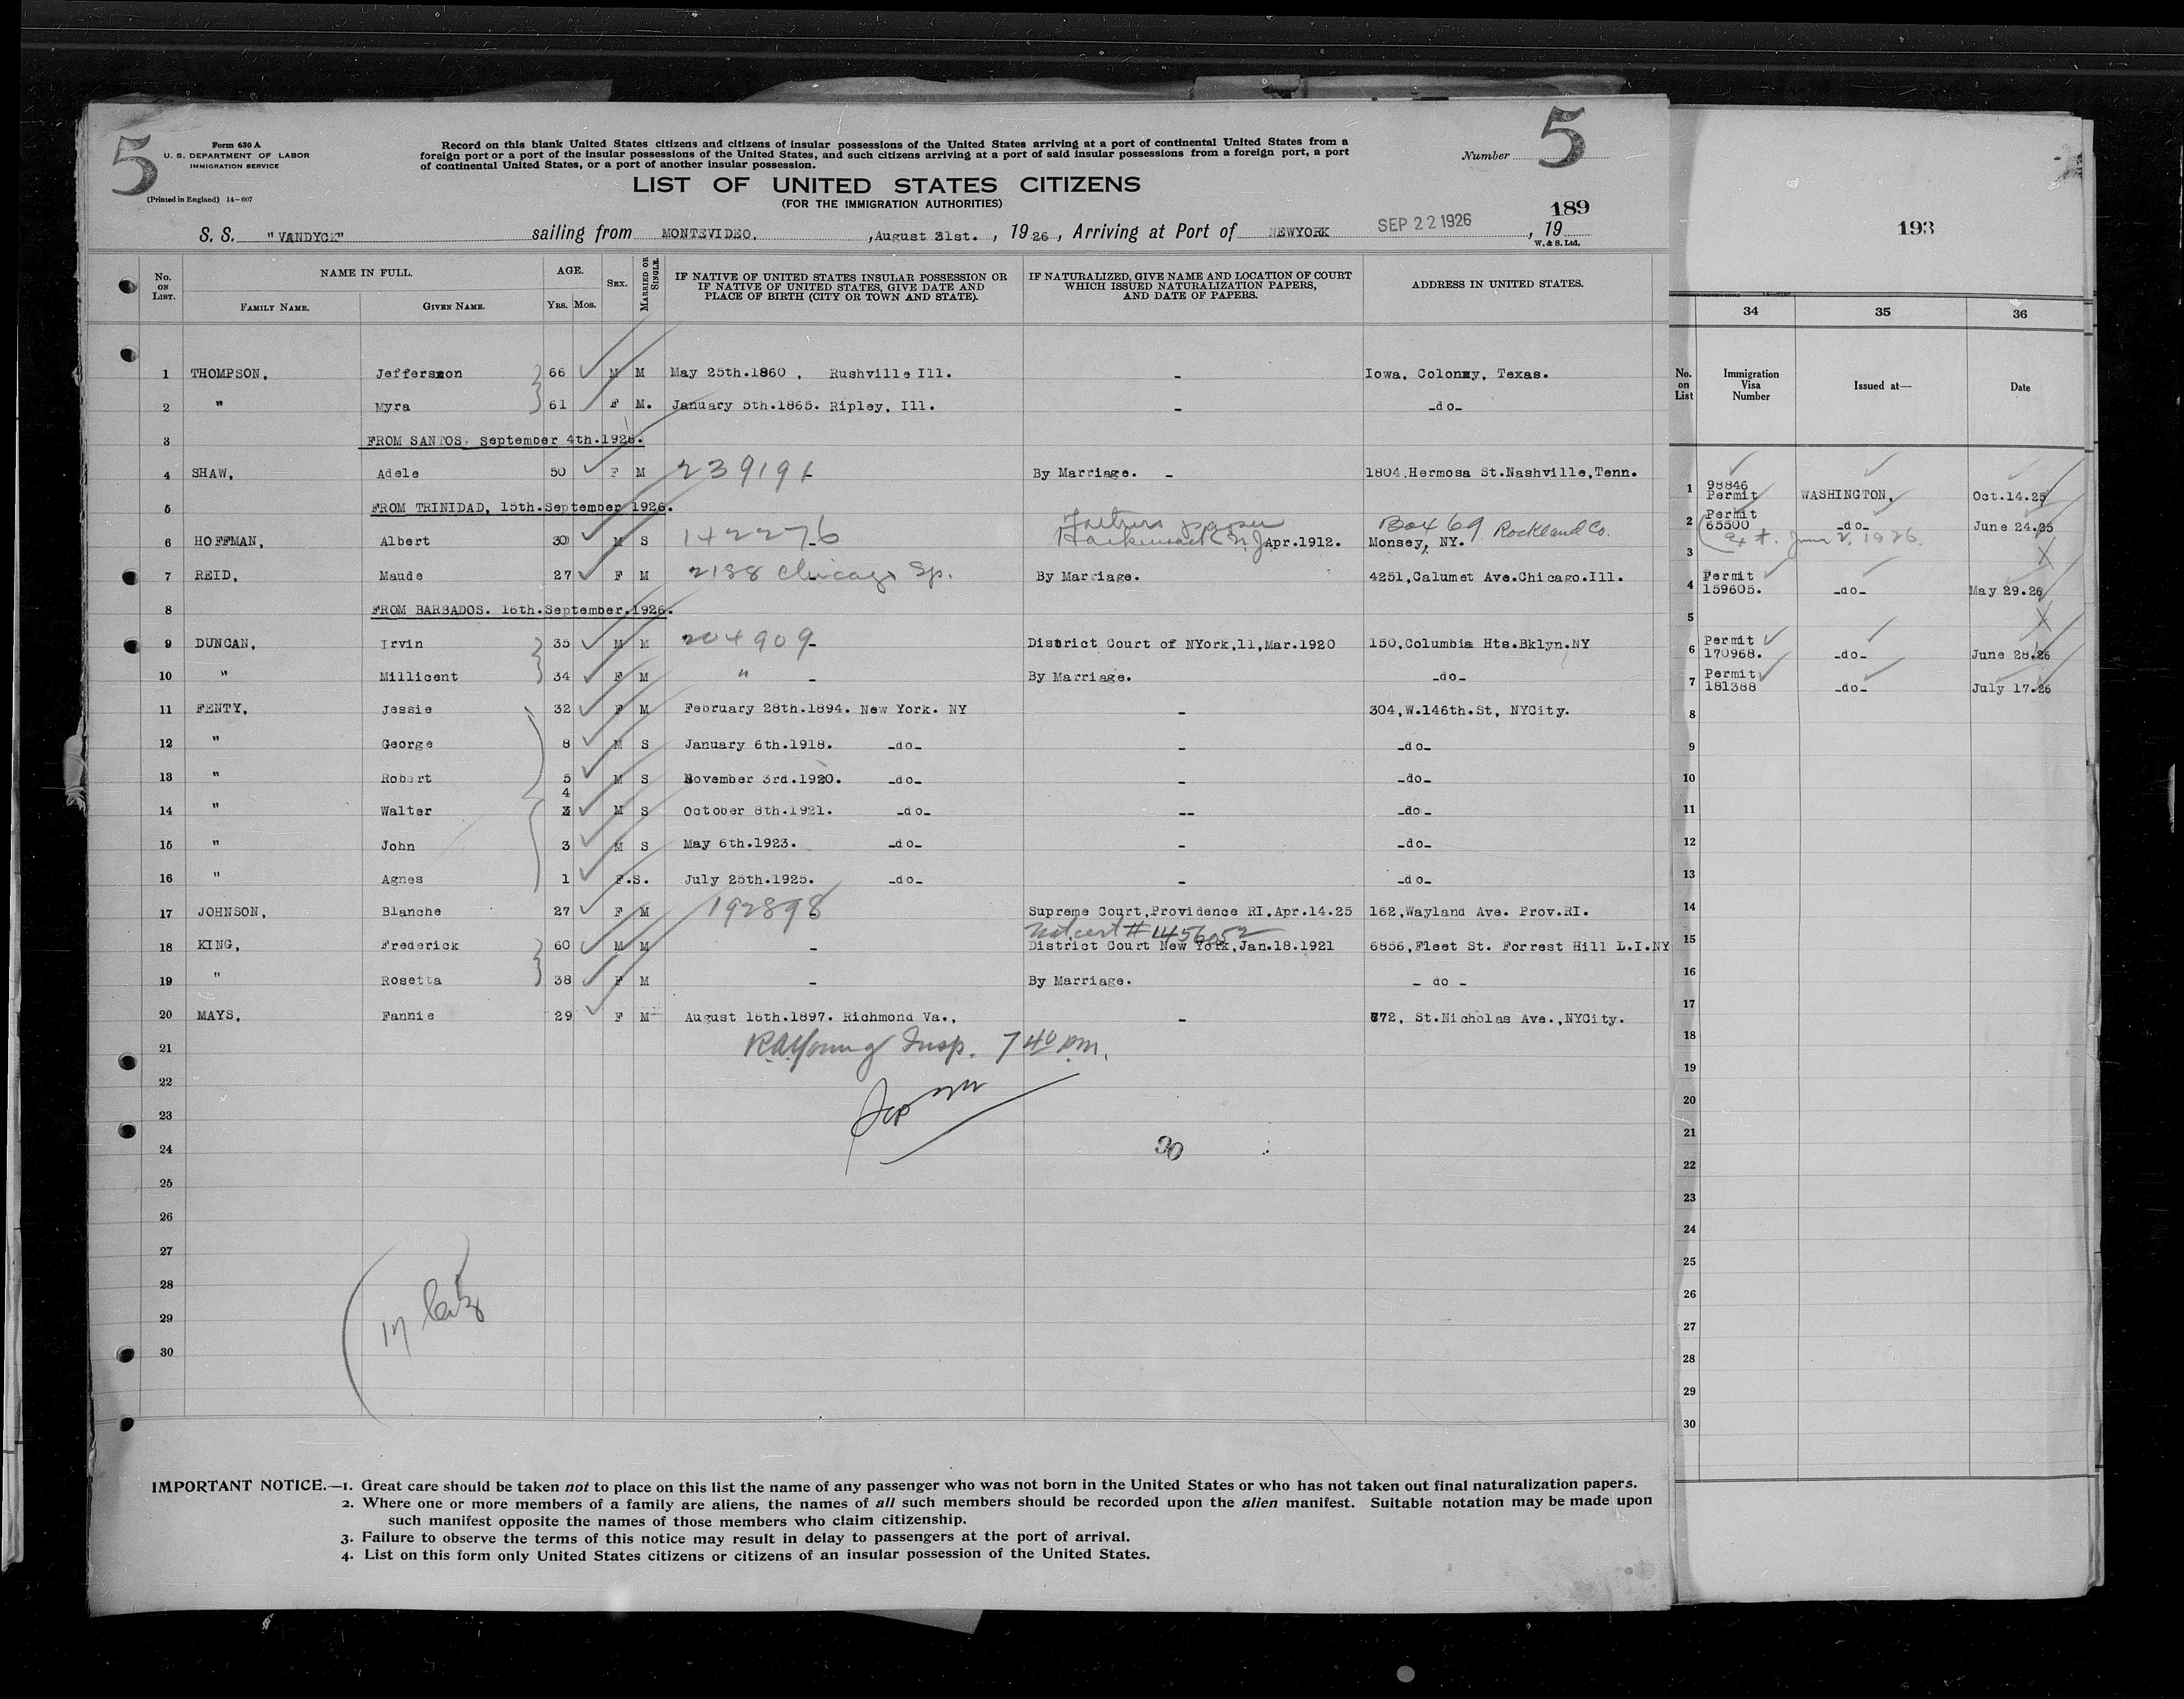 5
Form 630 A
U. S. DEPARTMENT OF LABOR
IMMIGRATION SERVICE
(Printed in England) 14-607
Record on this blank United States citizens and citizens of insular possessions of the United States arriving at a port of continental United States from a
foreign port or a port of the insular possessions of the United States, and such citizens arriving at a port of said insular possessions from a foreign port, a port
of continental United States, or a port of another insular possession.
Number 5
LIST OF UNITED STATES CITIZENS
(FOR THE IMMIGRATION AUTHORITIES)
189
S. S. "VANDYCK" sailing from MONTEVIDEO. ,August 31st. , 1926, Arriving at Port of NEWYORK SEP 22 1926 , 19
W. & S. Ltd.
No. ON LIST. NAME IN FULL. FAMILY NAME. GIVEN NAME. AGE. YRS. MOS. SEX. MARRIED OR SINGLE. IF NATIVE OF UNITED STATES INSULAR POSSESSION OR IF NATIVE OF UNITED STATES, GIVE DATE AND PLACE OF BIRTH (CITY OR TOWN AND STATE). IF NATURALIZED, GIVE NAME AND LOCATION OF COURT WHICH ISSUED NATURALIZATION PAPERS, AND DATE OF PAPERS. ADDRESS IN UNITED STATES.
1 THOMPSON, Jefferson 66 M M May 25th.1860 , Rushville Ill. - Iowa, Colony, Texas.
2 " Myra 61 F M. January 5th.1865. Ripley, Ill. - -do-
3 FROM SANTOS. September 4th.1926.
4 SHAW, Adele 50 F M 239191 By Marriage. - 1804.Hermosa St.Nashville,Tenn.
5 FROM TRINIDAD, 15th.September 1926.
6 HOFFMAN, Albert 30 M S 142276 - Fathers paper Hackensack N.J Apr.1912. Box 69 Rockland Co. Monsey, NY.
7 REID, Maude 27 F M 2188 Chicago Sp. By Marriage. 4251,Calumet Ave.Chicago.Ill.
8 FROM BARBADOS. 16th.September.1926.
9 DUNCAN, Irvin 35 M M 204909 - District Court of NYork,11,Mar.1920 150,Columbia Hts.Bklyn.NY
10 " Millicent 34 F M " - By Marriage. -do-
11 FENTY, Jessie 32 F M February 28th.1894. New York. NY - 304,W.146th.St, NYCity.
12 " George 8 M S January 6th.1918. -do- - -do-
13 " Robert 5 M S November 3rd.1920. -do- - -do-
14 " Walter 4 3 M S October 8th.1921. -do- -- -do-
15 " John 3 M S May 6th.1923. -do- - -do-
16 " Agnes 1 F.S. July 25th.1925. -do- - -do-
17 JOHNSON, Blanche 27 F M 192898 Supreme Court,Providence RI,Apr.14.25 162,Wayland Ave. Prov.RI.
Nat cert # 1456052
18 KING, Frederick 60 M M - District Court New York,Jan.18.1921 6856,Fleet St. Forrest Hill L.I.NY
19 " Rosetta 38 F M - By Marriage. - do -
20 MAYS, Fannie 29 F M August 16th.1897. Richmond Va., - 772, St.Nicholas Ave.,NYCity.
21 R.A.Young Insp. 7 40 pm.
22
23
24 30
25
26
27
28
29
30
in
IMPORTANT NOTICE.—1. Great care should be taken not to place on this list the name of any passenger who was not born in the United States or who has not taken out final naturalization papers.
2. Where one or more members of a family are aliens, the names of all such members should be recorded upon the alien manifest. Suitable notation may be made upon
such manifest opposite the names of those members who claim citizenship.
3. Failure to observe the terms of this notice may result in delay to passengers at the port of arrival.
4. List on this form only United States citizens or citizens of an insular possession of the United States.
193
34 35 36
No. on List Immigration Visa Number Issued at— Date
1 98846 Permit WASHINGTON, Oct.14.25
2 Permit 65500 -do- June 24.25
3 Ext. June 2, 1926. X
4 Permit 159605. -do- May 29.26
5 X
6 Permit 170968. -do- June 28.26
7 Permit 181388 -do- July 17.26
8
9
10
11
12
13
14
15
16
17
18
19
20
21
22
23
24
25
26
27
28
29
30